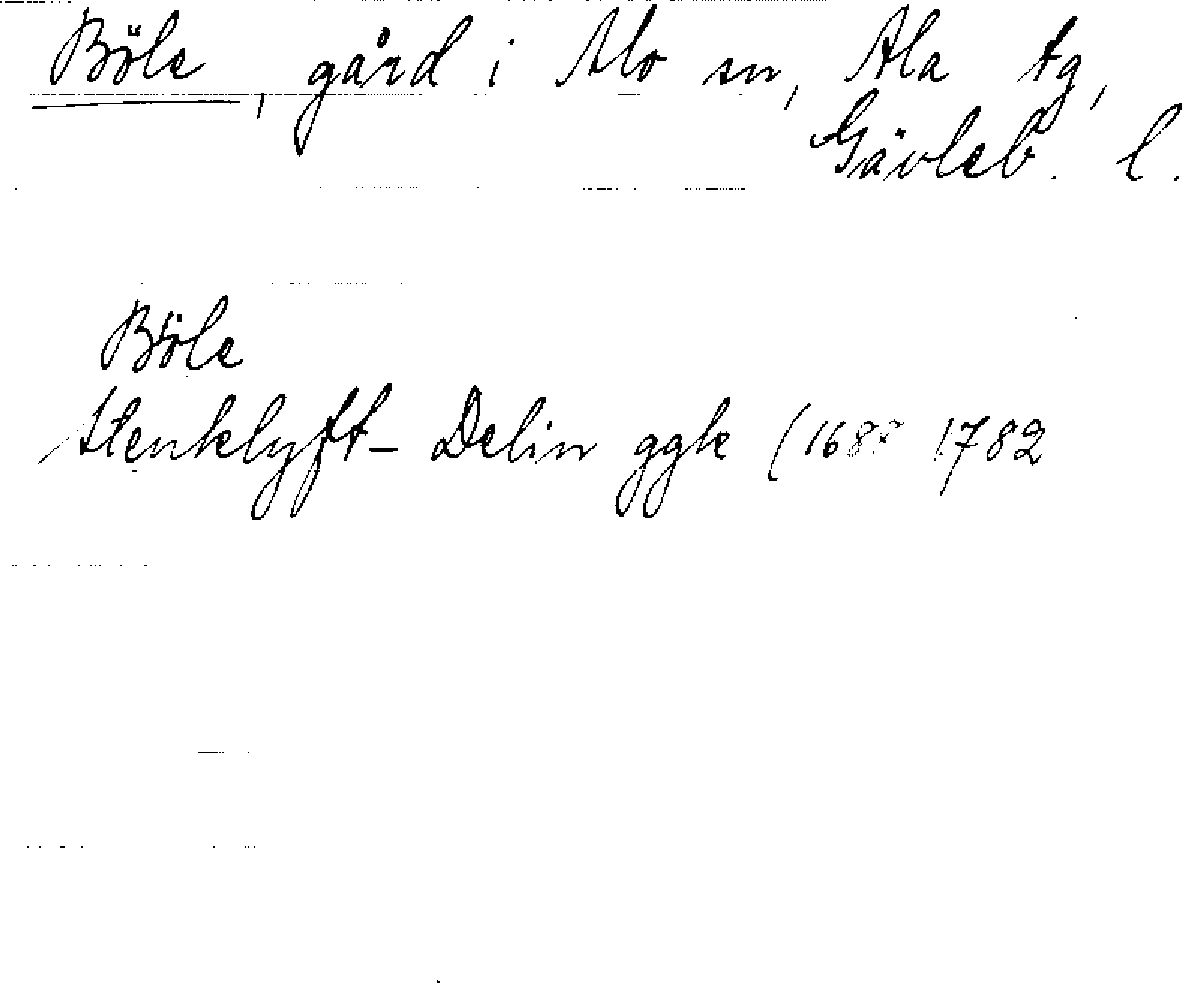 Böle, gård i Mo sn, Ala tg,
Gävleb. l.
Böle
Stenklyft- Delin ggk (1688 1782